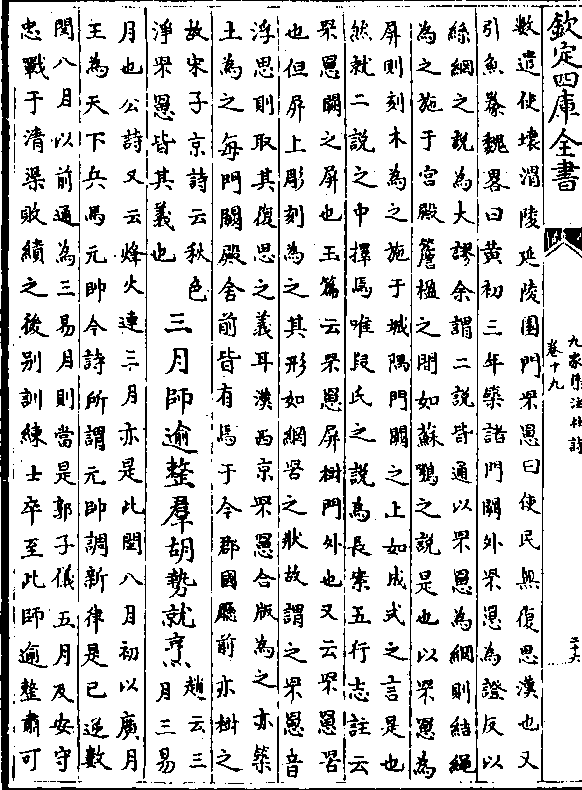 欽定四庫全書
九家集注杜詩
卷十九
二十六
數遣使壞渭陵延陵園門罘罳曰使民無復思漢也又
引魚豢魏畧曰黄初三年築諸門闕外罘罳為證反以
絲網之説為大謬余謂二説皆通以罘罳為網則結繩
為之施于宫殿簷楹之間如蘇鶚之説是也以罘罳為
屏則刻木為之施于城隅門闕之上如成式之言是也
然就二説之中擇焉唯段氏之説為長案五行志註云
罘罳闕之屏也玉篇云罘罳屏樹門外也又云罘罳罟
也但屏上彫刻為之其形如網罟之狀故謂之罘罳音
浮思則取其復思之義耳漢西京罘罳合版為之亦築
土為之每門闕殿舍前皆有焉于今郡國廳前亦樹之
故宋子京詩云秋色
淨罘罳皆其義也
三月師逾整羣胡勢就烹
趙云三
月三易
月也公詩又云烽火連三月亦是此閏八月初以廣月
王為天下兵馬元帥今詩所謂元帥調新律是已逆數
閏八月以前通為三易月則當是郭子儀五月及安守
忠戰于清渠敗績之後别訓練士卒至此師逾整肅可